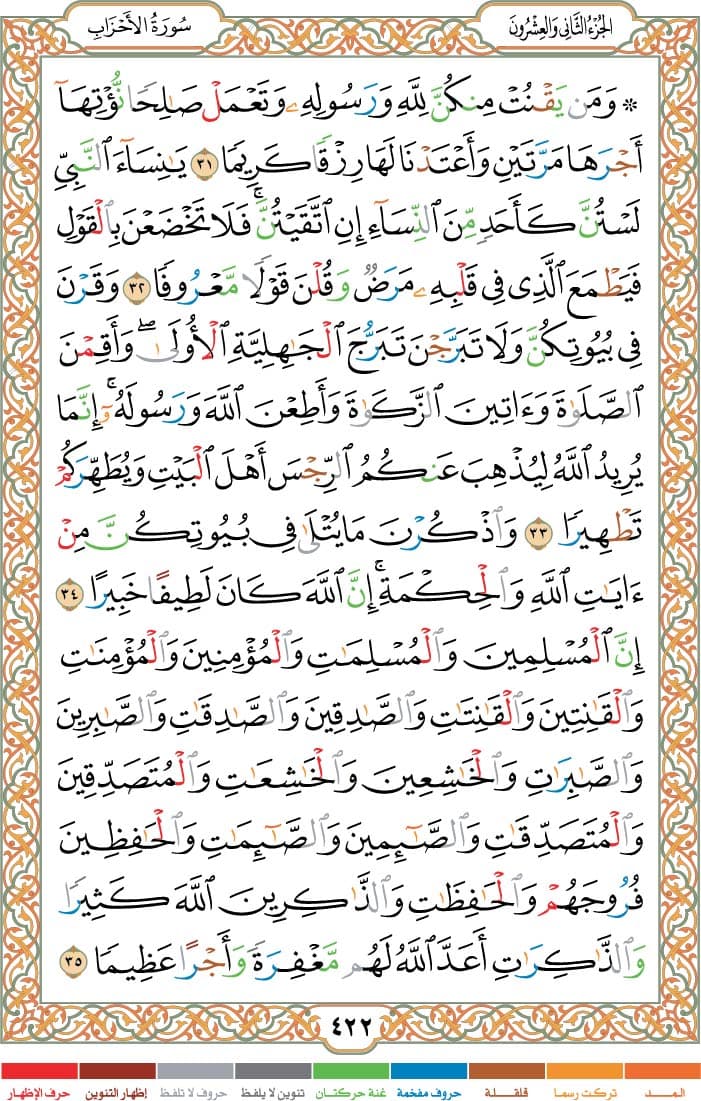 الجزء الثاني والعشرون
سورة الأحزاب
۞ وَمَن يَقْنُتْ مِنكُنَّ لِلَّهِ وَرَسُولِهِۦ وَتَعْمَلْ صَٰلِحًا نُّؤْتِهَآ
أَجْرَهَا مَرَّتَيْنِ وَأَعْتَدْنَا لَهَا رِزْقًا كَرِيمًا ٣١ يَٰنِسَآءَ ٱلنَّبِيِّ
لَسْتُنَّ كَأَحَدٍ مِّنَ ٱلنِّسَآءِ إِنِ ٱتَّقَيْتُنَّۚ فَلَا تَخْضَعْنَ بِٱلْقَوْلِ
فَيَطْمَعَ ٱلَّذِى فِى قَلْبِهِۦ مَرَضٌ وَقُلْنَ قَوْلًا مَّعْرُوفًا ٣٢ وَقَرْنَ
فِى بُيُوتِكُنَّ وَلَا تَبَرَّجْنَ تَبَرُّجَ ٱلْجَٰهِلِيَّةِ ٱلْأُولَىٰۖ وَأَقِمْنَ
ٱلصَّلَوٰةَ وَءَاتِينَ ٱلزَّكَوٰةَ وَأَطِعْنَ ٱللَّهَ وَرَسُولَهُۥٓۚ إِنَّمَا
يُرِيدُ ٱللَّهُ لِيُذْهِبَ عَنكُمُ ٱلرِّجْسَ أَهْلَ ٱلْبَيْتِ وَيُطَهِّرَكُمْ
تَطْهِيرًا ٣٣ وَٱذْكُرْنَ مَا يُتْلَىٰ فِى بُيُوتِكُنَّ مِنْ
ءَايَٰتِ ٱللَّهِ وَٱلْحِكْمَةِۚ إِنَّ ٱللَّهَ كَانَ لَطِيفًا خَبِيرًا ٣٤
إِنَّ ٱلْمُسْلِمِينَ وَٱلْمُسْلِمَٰتِ وَٱلْمُؤْمِنِينَ وَٱلْمُؤْمِنَٰتِ
وَٱلْقَٰنِتِينَ وَٱلْقَٰنِتَٰتِ وَٱلصَّٰدِقِينَ وَٱلصَّٰدِقَٰتِ وَٱلصَّٰبِرِينَ
وَٱلصَّٰبِرَٰتِ وَٱلْخَٰشِعِينَ وَٱلْخَٰشِعَٰتِ وَٱلْمُتَصَدِّقِينَ
وَٱلْمُتَصَدِّقَٰتِ وَٱلصَّٰٓئِمِينَ وَٱلصَّٰٓئِمَٰتِ وَٱلْحَٰفِظِينَ
فُرُوجَهُمْ وَٱلْحَٰفِظَٰتِ وَٱلذَّٰكِرِينَ ٱللَّهَ كَثِيرًا
وَٱلذَّٰكِرَٰتِ أَعَدَّ ٱللَّهُ لَهُم مَّغْفِرَةً وَأَجْرًا عَظِيمًا ٣٥
٤٢٢
المـــد تركت رسما قلقـلة حروف مفخمة غنة حركتان تنوين لا يلفظ حروف لا تلفظ إظهار التنوين حرف الإظهار